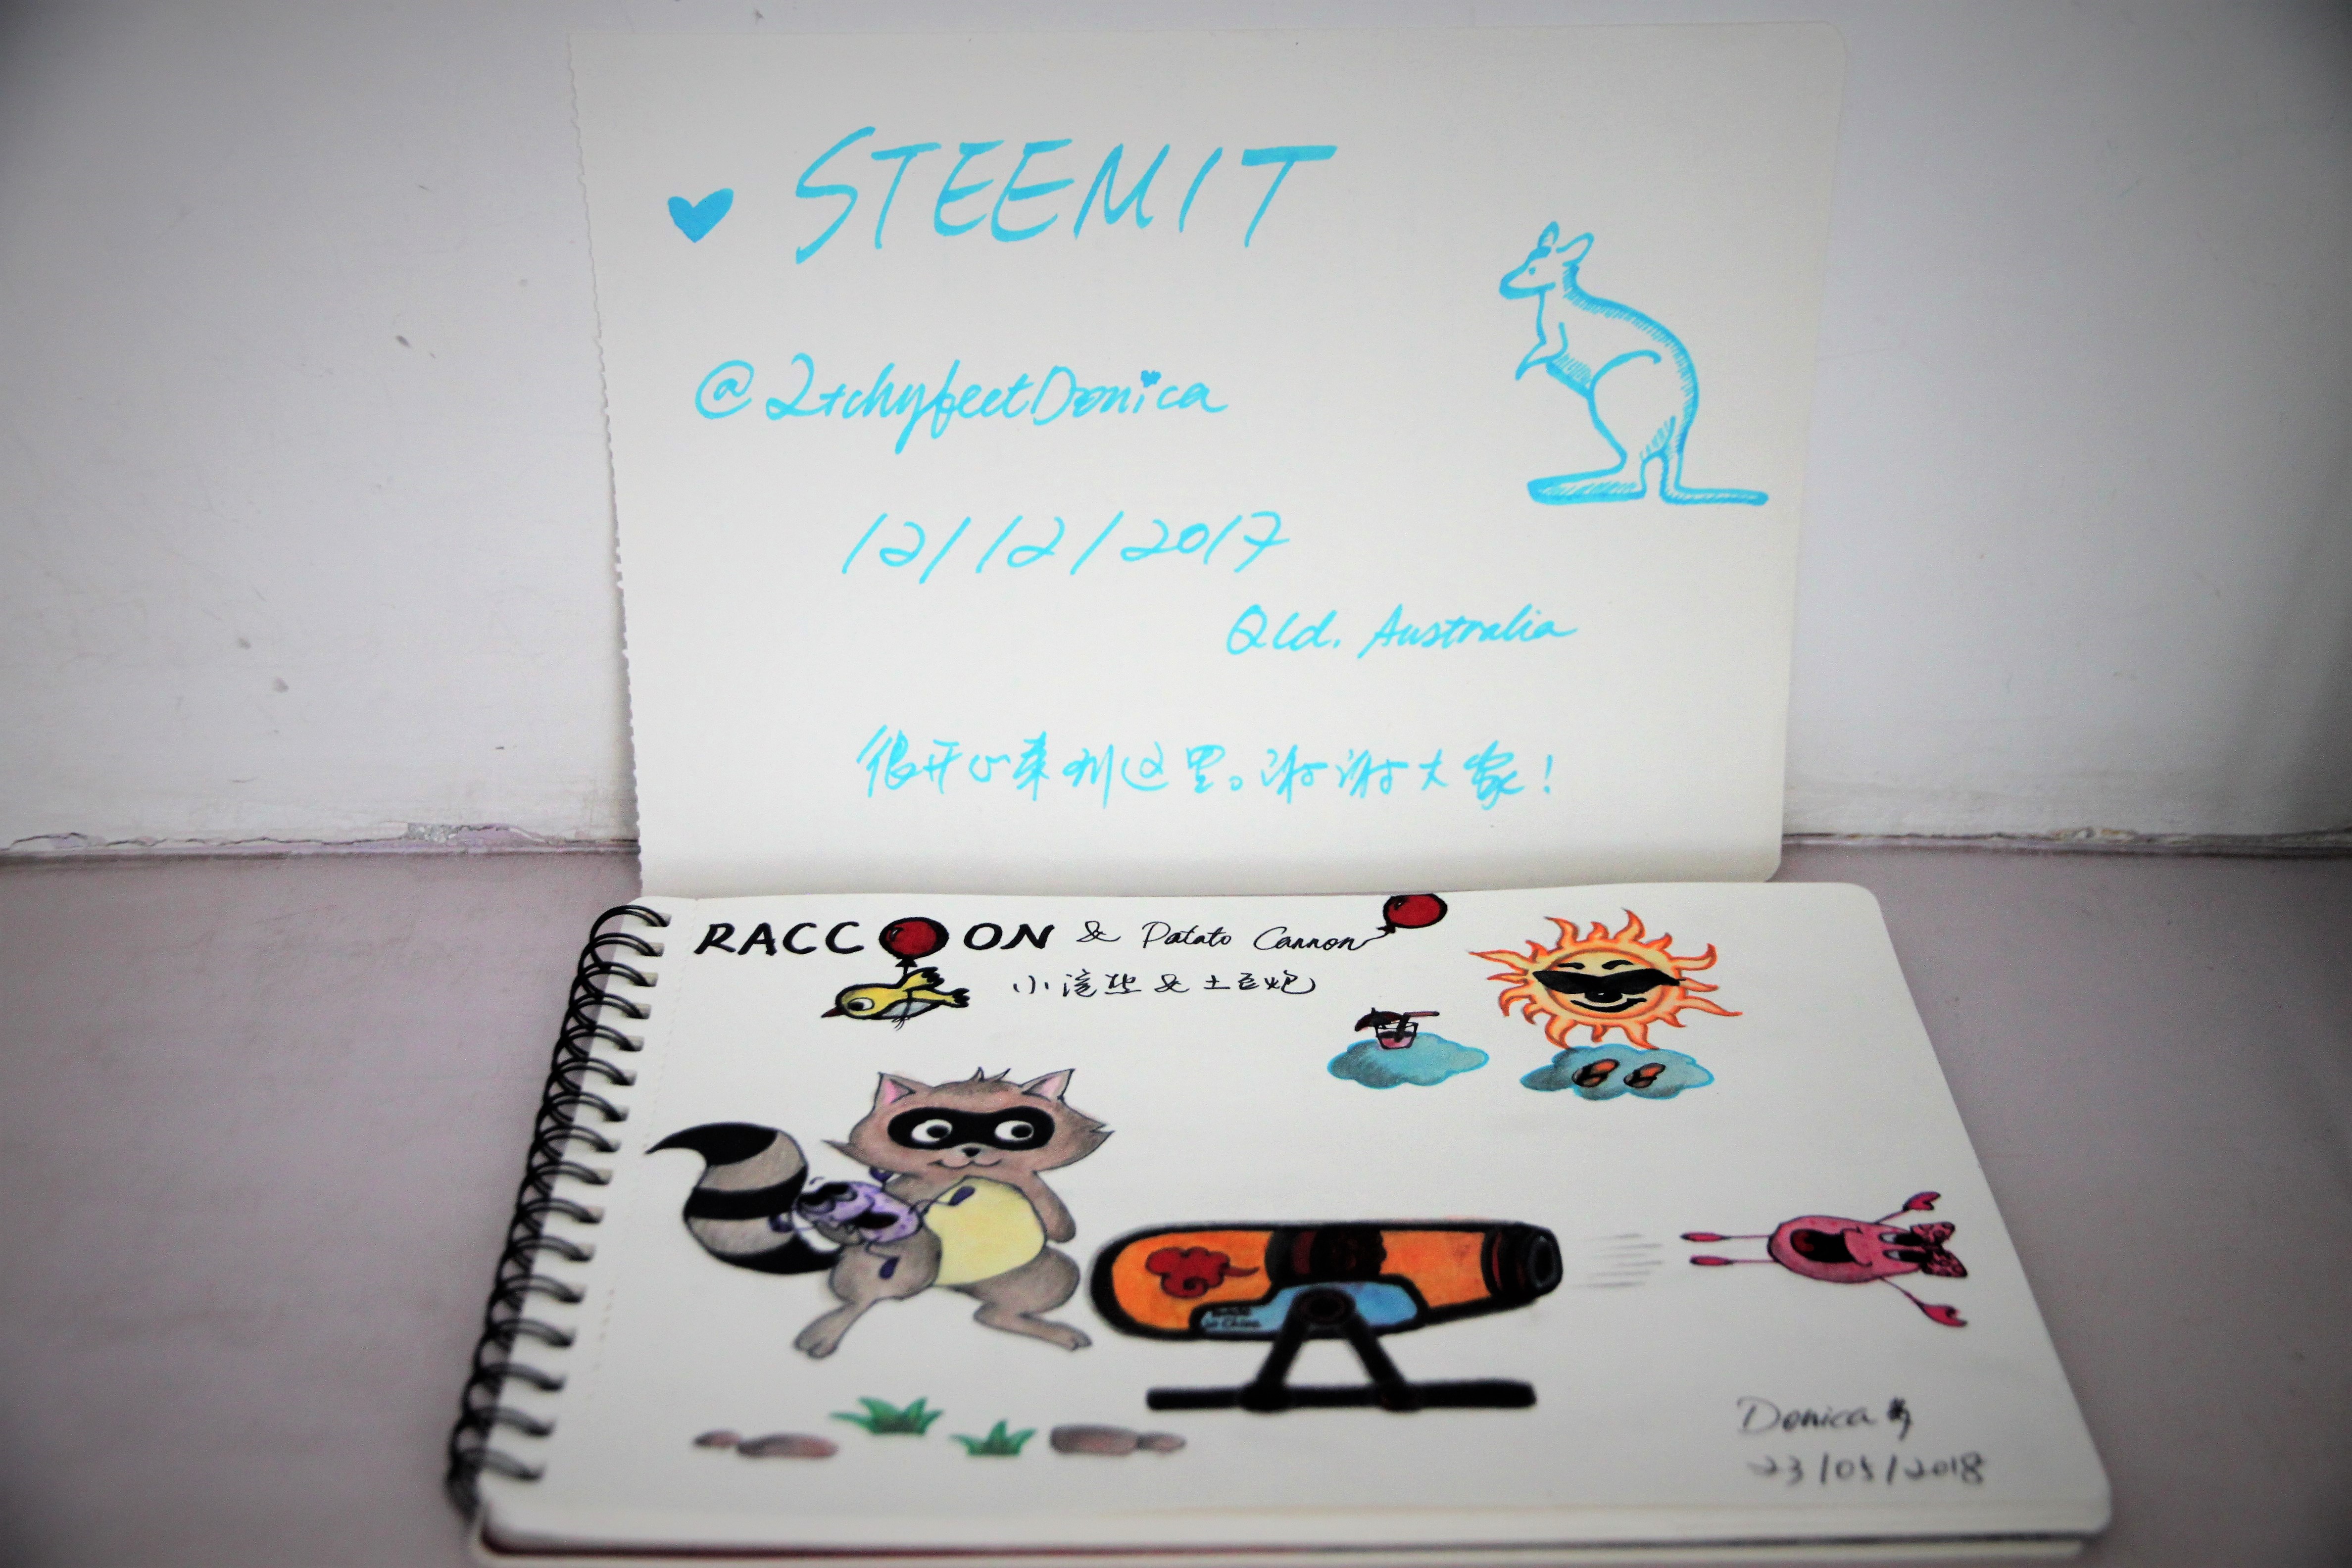 STEEMIT
@2tchyfeetDonica
12/12/2017
Qld. Australia
很开心来到这里。谢谢大家!
RACCOON & Patato Cannon
小浣熊 & 土豆炮
Donica
23/05/2018